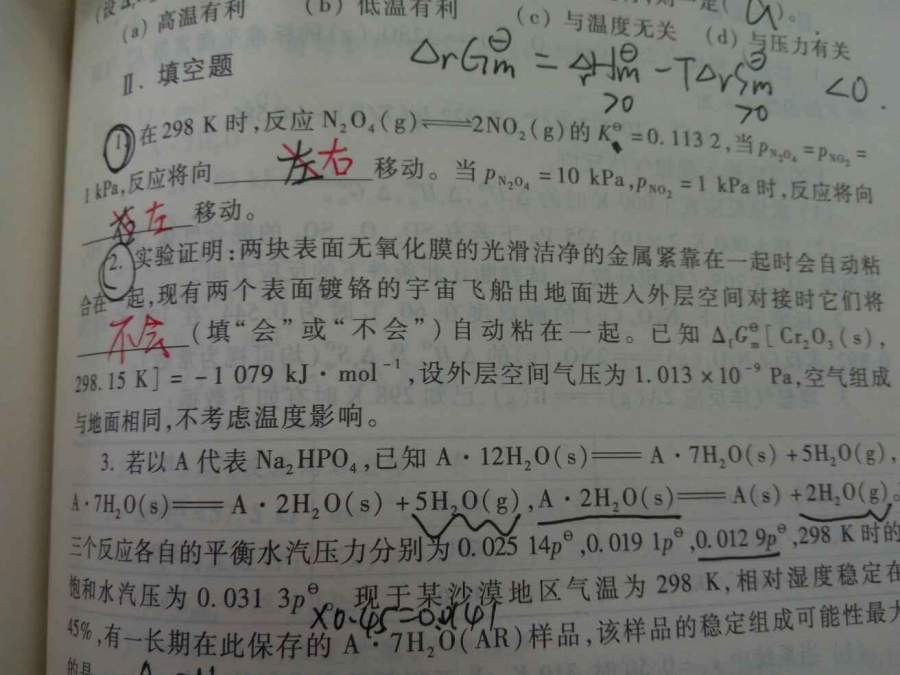 (a) 高温有利 (b) 低温有利 (c) 与温度无关 (d) 与压力有关
(a)。
ΔrGm⊖ = ΔrHm⊖ - TΔrSm⊖ <0.
>0 >0
Ⅱ. 填空题
1. 在298 K 时,反应 N₂O₄(g)⇌2NO₂(g)的 K⊖ =0.113 2,当 p_N₂O₄ =p_NO₂ =
1 kPa,反应将向 右 移动。当 p_N₂O₄ =10 kPa,p_NO₂ =1 kPa 时,反应将向
左 移动。
2. 实验证明:两块表面无氧化膜的光滑洁净的金属紧靠在一起时会自动粘
合在一起,现有两个表面镀铬的宇宙飞船由地面进入外层空间对接时它们将
不会 (填“会”或“不会”)自动粘在一起。已知 ΔfGm⊖[Cr₂O₃(s),
298.15 K] = -1 079 kJ·mol⁻¹,设外层空间气压为 1.013×10⁻⁹ Pa,空气组成
与地面相同,不考虑温度影响。
3. 若以 A 代表 Na₂HPO₄,已知 A·12H₂O(s)══A·7H₂O(s)+5H₂O(g),
A·7H₂O(s)══A·2H₂O(s)+5H₂O(g),A·2H₂O(s)══A(s)+2H₂O(g)。
三个反应各自的平衡水汽压力分别为 0.025 14p⊖,0.019 1p⊖,0.012 9p⊖,298 K 时的
饱和水汽压为 0.031 3p⊖。现于某沙漠地区气温为 298 K,相对湿度稳定在
×0.45=0.0141
45%,有一长期在此保存的 A·7H₂O(AR)样品,该样品的稳定组成可能性最大
的是